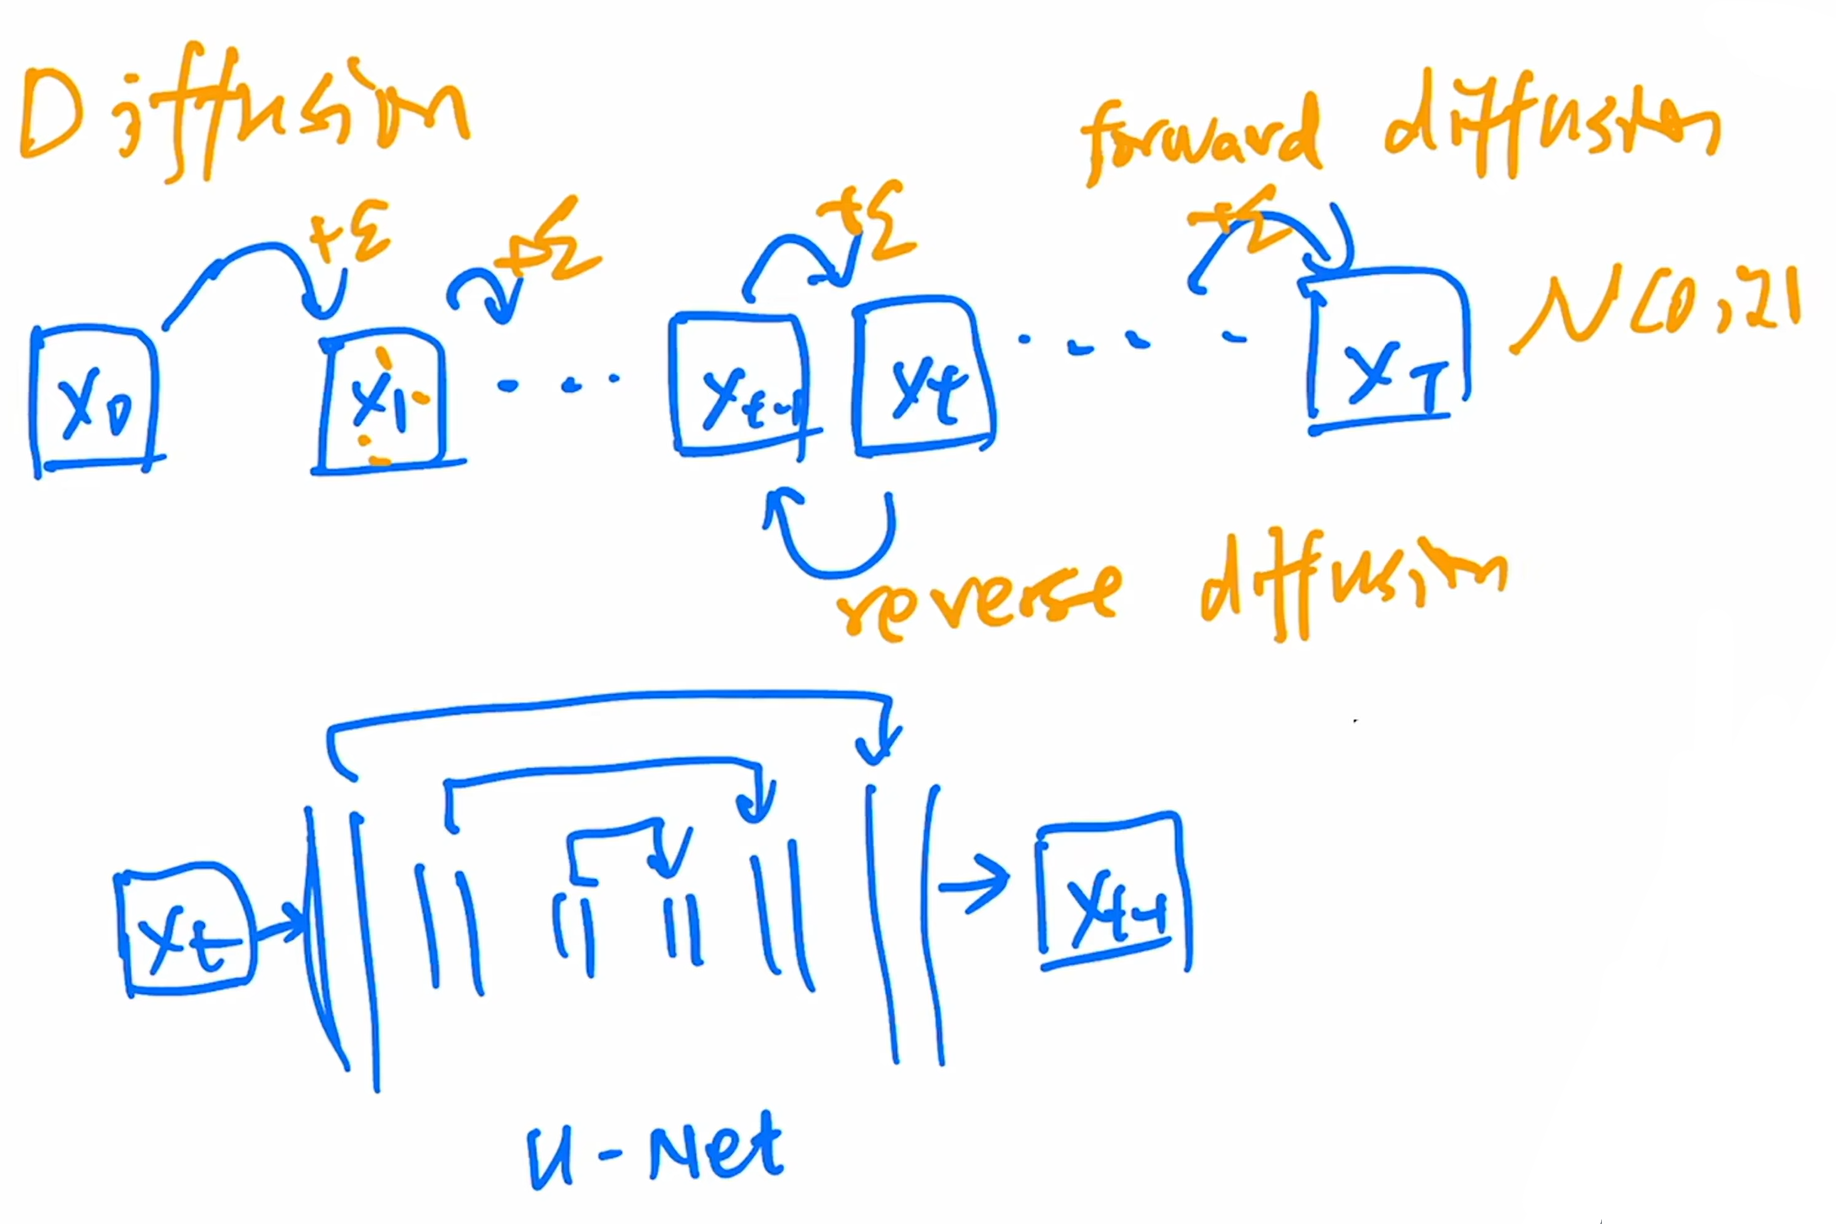 Diffusion
forward diffusion
+ε +ε +ε +ε
x0 x1 ... xt-1 xt .... xT N(0, I)
reverse diffusion
xt xt-1
U-Net